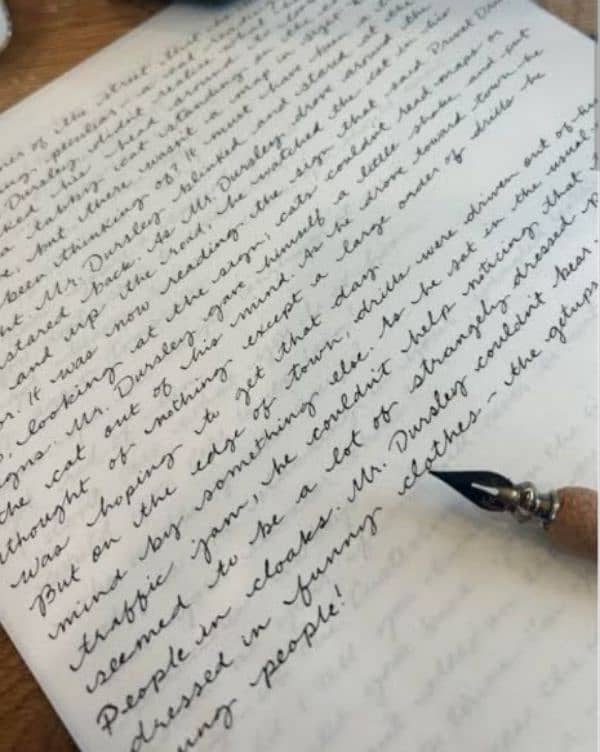 of the street that he
peculiar - a cat reading
Dursley didn't realize what
his head around to
a tabby cat standing on the
but there wasn't a map in sight
been thinking of? It must have been a
Mr. Dursley blinked and stared at the
stared back. As Mr. Dursley drove around the
and up the road, he watched the cat in his
or. It was now reading the sign that said Privet Driv
looking at the sign, cats couldn't read maps or
igns. Mr. Dursley gave himself a little shake and put
the cat out of his mind. As he drove toward town he
thought of nothing except a large order of drills he
was hoping to get that day.
But on the edge of town, drills were driven out of his
mind by something else. As he sat in the usual
traffic jam, he couldn't help noticing that
seemed to be a lot of strangely dressed p
People in cloaks. Mr. Dursley couldn't bear
dressed in funny clothes - the getups
ung people!